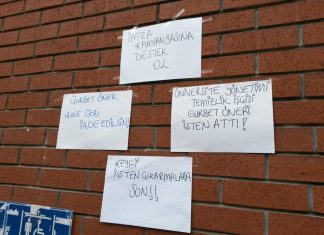 İMZA
KAMPANYASINA
DESTEK
OL
GURBET ÖNER
İŞİNE GERİ
İADE EDİLSİN!
ÜNİVERSİTE YÖNETİMİ
TEMİZLİK İŞÇİSİ
GURBET ÖNER'İ
İŞTEN ATTI!
KEYFİ
İŞTEN ÇIKARMALARA
SON!!